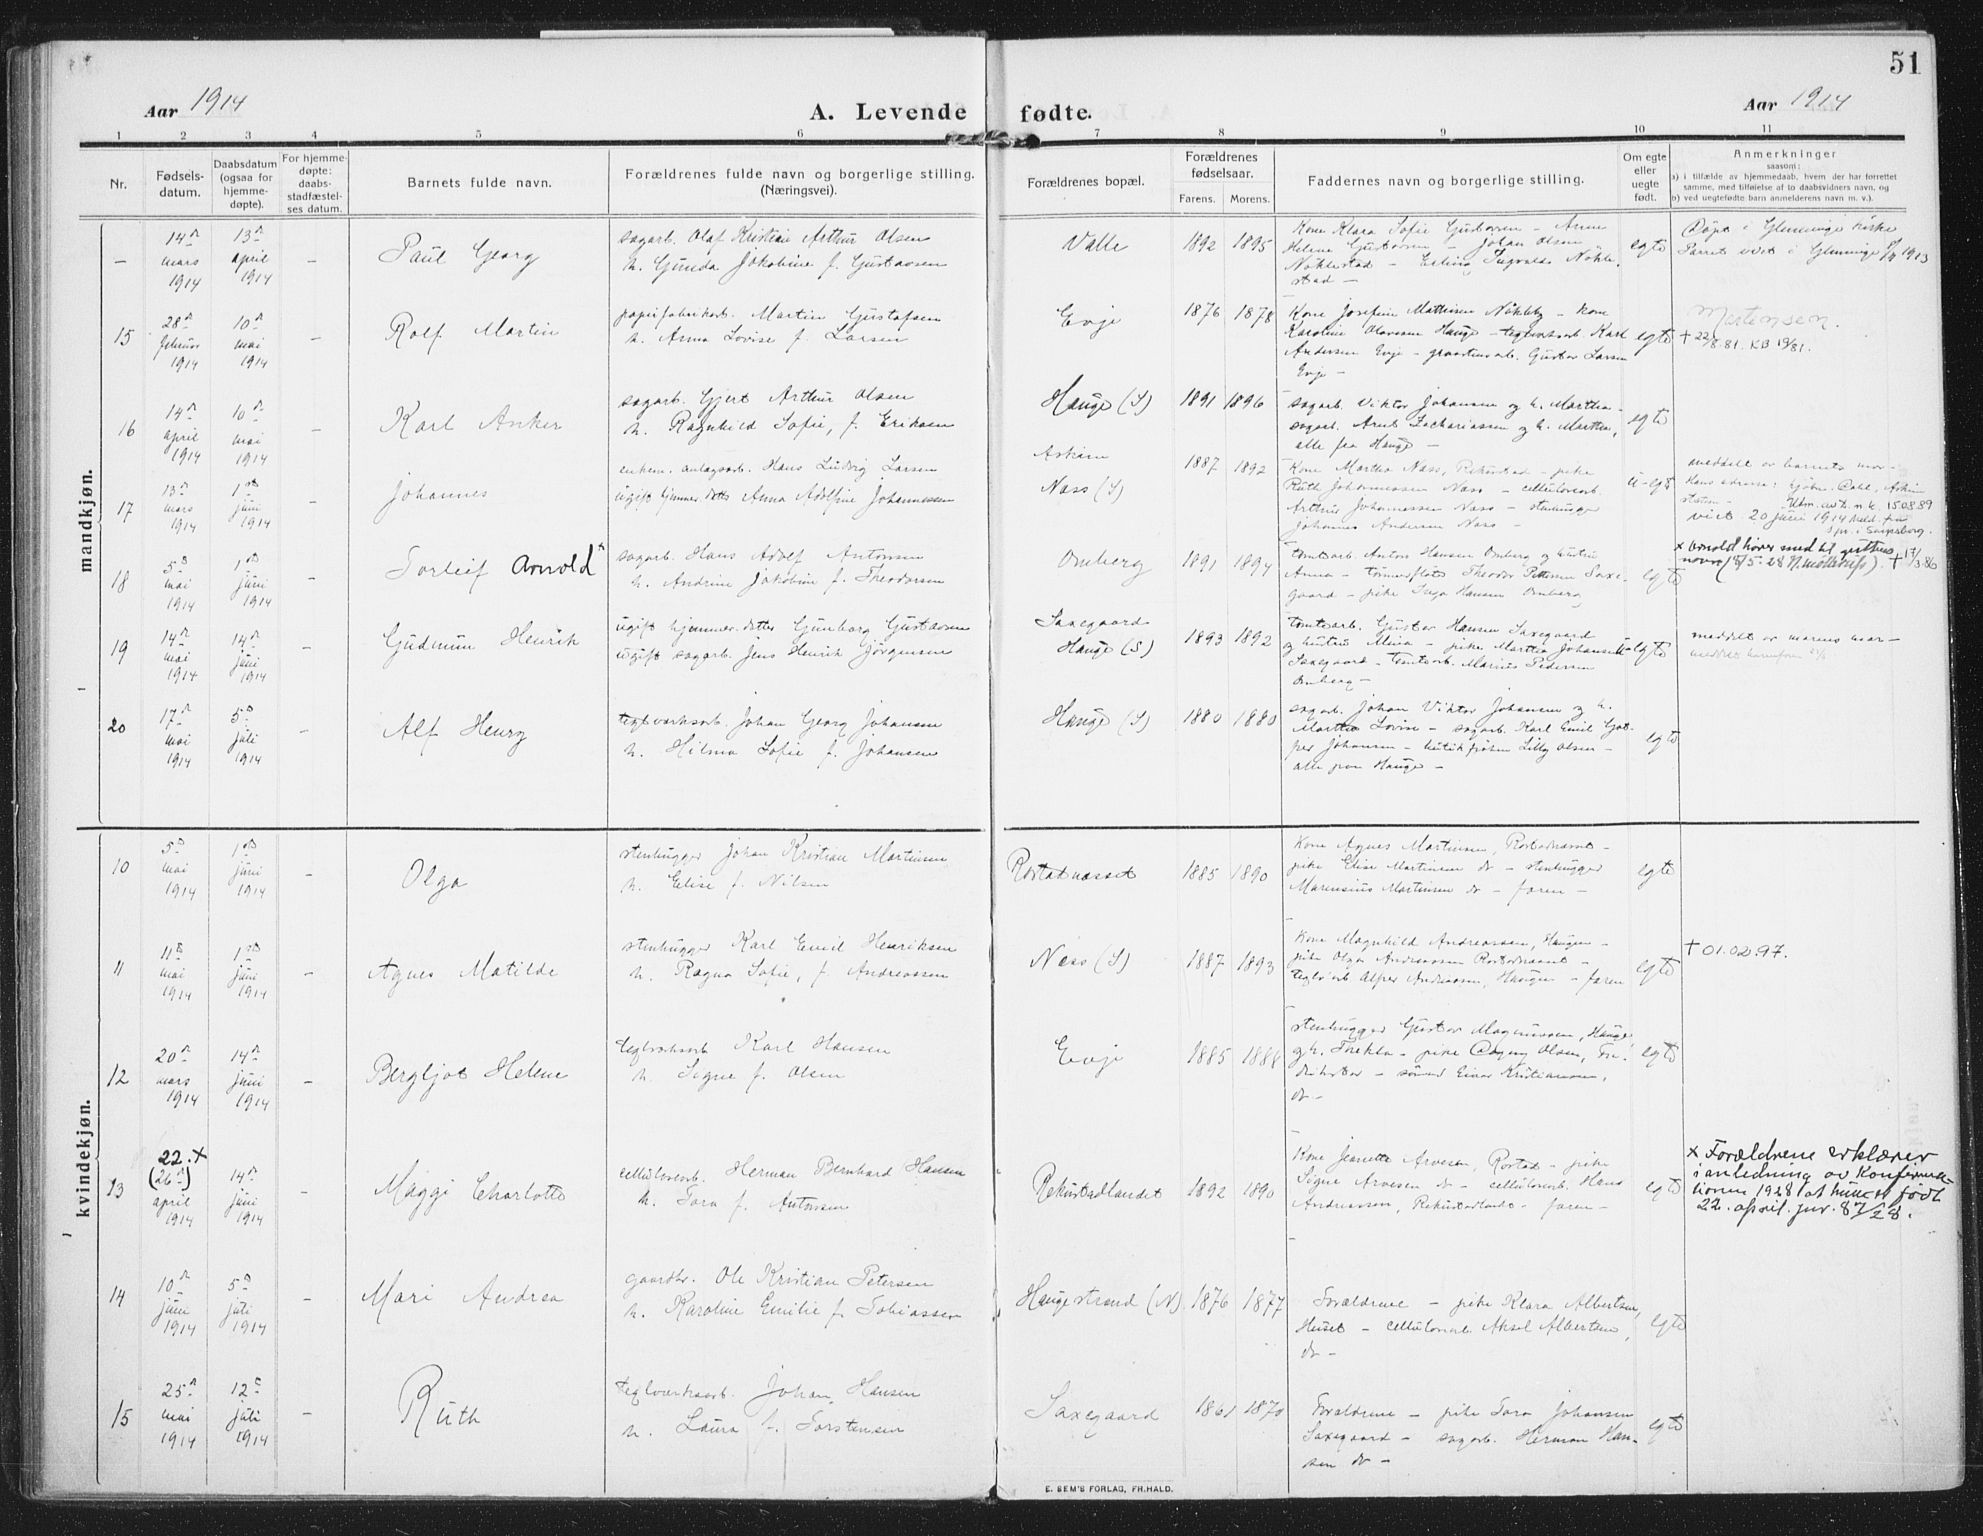 51
Aar 1914
A. Levende fødte.
Aar 1914
1 2 3 4 5 6 7 8 9 10 11
Nr.
Fødsels-
datum.
Daabsdatum
(ogsaa for
hjemme-
døpte).
For hjemme-
døpte:
daabs-
stadfæstel-
ses datum.
Barnets fulde navn.
Forældrenes fulde navn og borgerlige stilling.
(Næringsvei).
Forældrenes bopæl.
Forældrenes
fødselsaar.
Farens. Morens.
Faddernes navn og borgerlige stilling.
Om egte
eller
uegte
født.
Anmerkninger
saasom:
a) i tilfælde av hjemmedaab, hvem der har forrettet
samme, med tilføielse af to daabsvidners navn, og
b) ved uegtefødte barn anmelderens navn m. v.).
mandkjøn.
–
14de
mars
1914
13de
april
1914
–
Paul Georg
sagarb. Olaf Kristian Arthur Olsen
h. Gunda Jakobine f. Gustavsen
Valle
1892 1895
Kone Klara Sofie Gustavsen – Anne
Helene Gustavsen – Johan Olsen
Nøklestad – Erling Ingvald Nøkle-
stad –
egte
Døpt i Glemminge kirke
Parret viet i Glemminge 1913
15
28de
februar
1914
10de
mai
1914
–
Rolf Martin
papirfabrikarb. Martin Gustafsen
h. Anna Lovise f. Larsen
Evje
1876 1878
Kone Josefine Mathisen Nökleby – kone
Karoline Olavesen Hauge – teglverksarb. Karl
Andersen Evje – graastensarb. Gustav Larsen
Evje –
egte
Martensen.
+ 22/8.81. KB 19/81.
16
14de
april
1914
10de
mai
1914
–
Karl Anker
sagarb. Gjert Arthur Olsen
h. Ragnhild Sofie, f. Eriksen
Hauge (S)
1891 1896
sagarb. Viktor Johansen og h. Martha –
sagarb. Arnt Zachariassen og h. Martha,
alle fra Hauge –
egte
17
13de
mars
1914
1ste
juni
1914
–
Johannes
enkem. anlægsarb. Hans Ludvig Larsen
ugift hjemmev. datter Anna Adolfine Johannessen
Askim
Næss (S)
1887 1892
Kone Martha Næss, Rekustad – pike
Ruth Johannessen Næss – cellulosearb.
Arthur Johannessen Næss – stenhugger
Johannes Andersen Næss –
u-egte
meddelt av barnets mor –
Hans adresse: kjøbm. Dahl, Askim
station –
Utm. av D. n. k. 150889
viet 20 juni 1914
18
5te
mai
1914
1ste
juni
1914
–
Torleif Arnold x
sagarb. Hans Adolf Antonsen
h. Andrine Jakobine f. Theodorsen
Omberg
1891 1894
tomtearb. Anton Hansen Omberg og hustru
Anna – tømmerfløter Theodor Pettersen Saxe-
gaard – pike Inga Hansen Omberg
egte
x Arnold hører med til guttens
navn +17/3.86
19
14de
mai
1914
14de
juni
1914
–
Gudmun Henrik
ugift hjemmev. datter Gunborg Gustavsen
ugift sagarb. Jens Henrik Jörgensen
Saxegaard
Hauge (S)
1893 1892
tomtearb. Gustav Hansen Saxegaard
og hustru Mina – pike Martha Johansen
Saxegaard – tomtearb. Marius Pedersen
Omberg –
u-egte
meddelt av morens mor –
20
17de
mai
1914
5te
juli
1914
–
Alf Henry
teglverksarb. Johan Georg Johansen
h. Hilma Sofie f. Johansen
Hauge (S)
1880 1880
sagarb. Johan Viktor Johansen og h.
Martha Lovise – sagarb. Karl Emil
Johansen – butikfrøken Lilly Olsen –
alle paa Hauge –
egte
kvindekjøn.
10
5te
mai
1914
1ste
juni
1914
–
Olga
stenhugger Johan Kristian Martinsen
h. Elise f. Nilsen
Rostadnæsset
1885 1890
Kone Agnes Martinsen, Rostadnæsset –
pike Elise Martinsen do – stenhugger
Marensius Martinsen do – faren –
egte
11
11te
mai
1914
1ste
juni
1914
–
Agnes Matilde
stenhugger Karl Emil Henriksen
h. Ragna Sofie, f. Andreassen
Næss (S)
1887 1893
Kone Magnhild Andreassen, Haugen –
pike Olga Andreassen Rostadnæsset –
teglv.arb Alfred Andreassen, Haugen – faren
egte
+ 01.02.97.
12
20de
mars
1914
14de
juni
1914
–
Bergljot Helene
teglverksarb Karl Hansen
h. Signe f. Olsen
Evje
1885 1888
stenhugger Gustav Magnussen, Hauge
og h. Thekla – pike Dagny Olsen, Fre-
drikstad – sømand Einar Kristiansen,
do –
egte
13
22. +
(26de)
april
1914
14de
juni
1914
–
Maggi Charlotte
cellulosearb. Herman Bernhard Hansen
h. Tora f. Antonsen
Rekustadlandet
1892 1890
Kone Jeanette Arvesen, Rostad – pike
Signe Arvesen do – cellulosearb. Hans
Andreassen, Rekustadlandet – faren –
egte
x Forældrene erklærer
i anledning av konfirma-
tionen 1928 at hun er født
22. april. jnr. 87/28.
14
10de
juni
1914
5te
juli
1914
–
Mari Andrea
gaardbr. Ole Kristian Petersen
h. Karoline Emilie f. Tobiassen
Haugestrand (N)
1876 1877
Forældrene – pike Klara Albertsen,
Huset – cellulosearb. Aksel Albertsen,
do –
egte
15
25de
mai
1914
12te
juli
1914
–
Ruth
teglverksarb. Johan Hansen
h. Laura f. Torstensen
Saxegaard
1861 1870
Forældrene – pike Tora Johansen
Saxegaard – sagarb. Herman Han-
sen do –
egte
E. SEM'S FORLAG, FR.HALD.